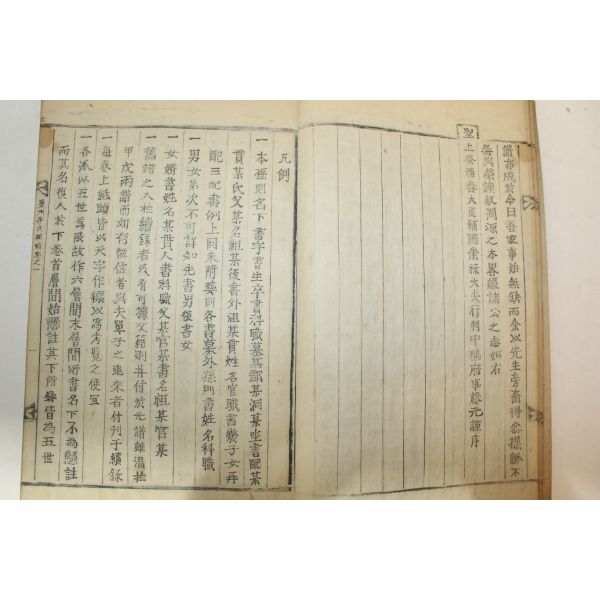 譜亦成於今日吾家事始無缺而余以先生旁裔得忝撰語不
無與榮謹叙淵源之本畧綴諸公之志如右
聖
上癸酉春大匡輔國崇祿大夫行判中樞府事元謹序
凡例
一本孫則名下書字書生卒書科職墓某鄕某洞某坐書配某
貫某氏父某名祖某後書外祖某貫姓名官職書幾子女再
配三配書例上同未附葬則各書墓外孫則書姓名科職
一男女第次不可詳知先書男後書女
一女婿書姓名某貫人書科職父某官某書名祖某官某
一舊譜之入於續錄者或有可據文籍則并付於元譜雖溫於
甲戌兩譜而如有徵信者與夫單子之追來者付刊于續錄
一每卷上紙頭皆以天字作標以爲考覽之便宜
一各派以五世爲限故作六層間末層間所書名下不爲懸註
而其名復入於下卷首層間始懸註其下所錄皆爲五世